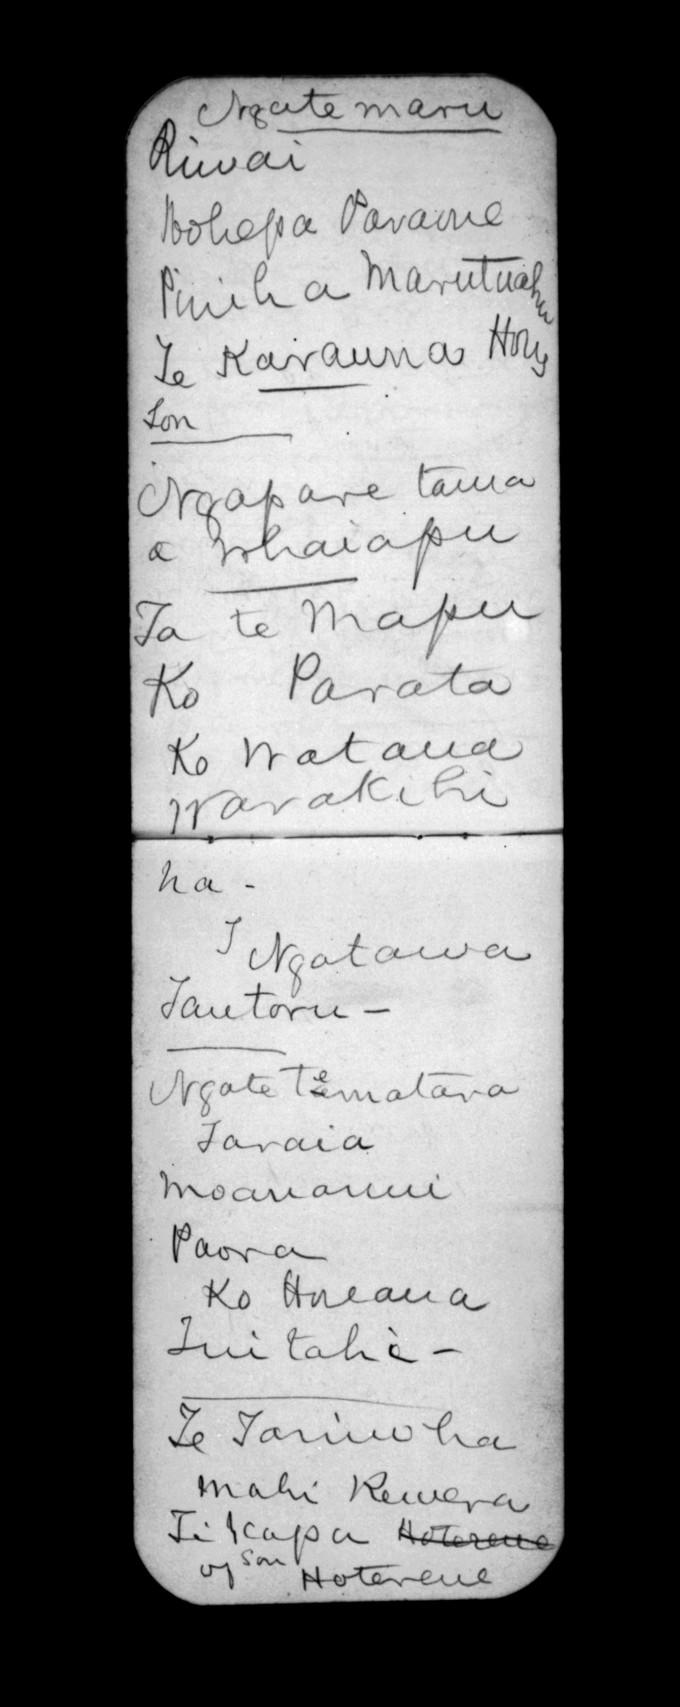 Ngatemaru
Riwai
Hohepa Paraone
Piniha Marutuahu
Te Karauna Hou's
Son
Ngapare taua
a Whaiapu
Ta te Mapu
Ko Parata
Ko Wataua
Warakihi
ha -
Ngatawa
Tautoru -
Ngate Tematara
Taraia
Moananui
Paora
Ko Horeana
Tuitahi -
Te Taniwha
Mahi Rewera
Ti kapa Hoterene
of son Hoterene